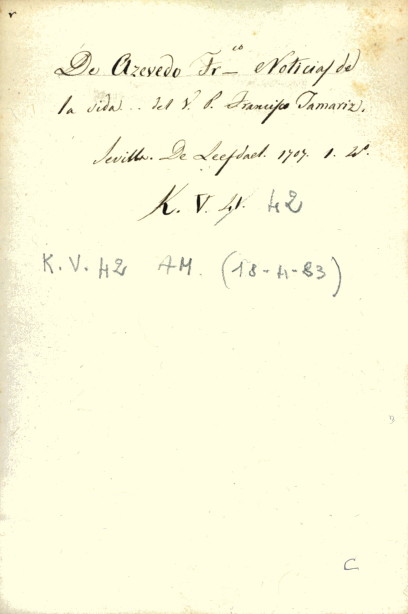 De Azevedo Fr.co Noticias de
la vida .. del V. P. Francisco Tamariz.
Sevilla. De Leefdael. 1707. 1. 4º.
K. V. 41. 42
K. V. 42 AM. (18-4-83)
C